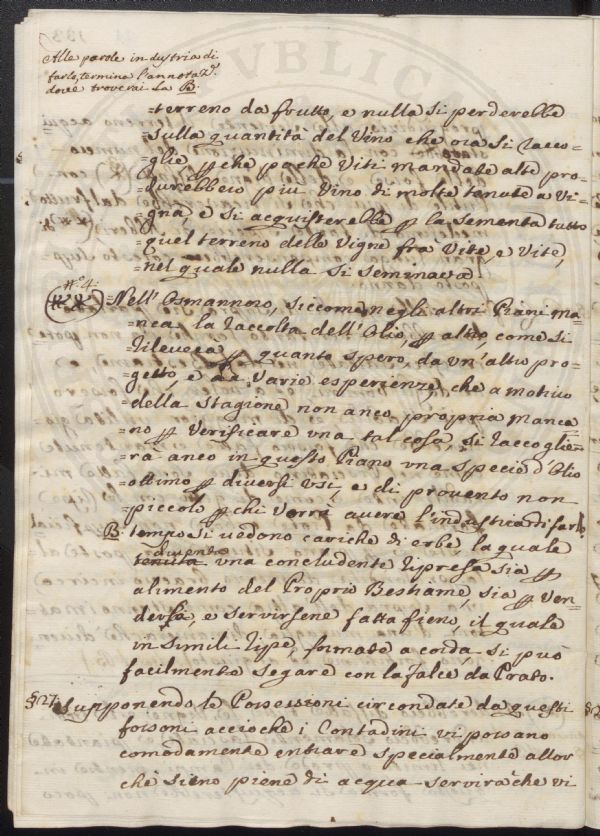 Alle parole industria di
farlo, termina l'annotaz.e
dove troverai la B.
=terreno da frutto, e nulla si perderebbe
sulla quantità del Vino che ora si racco=
=glie, p che poche Viti mandate alte pro=
=durebbero piu Vino di molte tenute a Vi=
=gna, e si acquisterebbe p la sementa tutto
quel terreno delle Vigne fra Vite, e Vite,
nel quale nulla si seminava.
N.o 4.
=Nell'Osmannoro, siccome negli altri Piani ma=
=nca la raccolta dell'Olio, p altro, come si
=rileverà p quanto spero, da un'altro pro=
=getto, e da varie esperienze, che a motivo
=della stagione non anco propria manca=
=no p verificare una tal cosa, si raccoglie=
=rà anco in questo Piano una specie d'Olio
=ottimo p diversi usi, e di provento non
=piccolo p chi vorrà avere l'industria di farlo.
B. tempo si vedono cariche di erba, la quale
diventa
tenuta una concludente ripresa sia p
alimento del Proprio Bestiame, sia p ven=
dersa, e servirsene fatta fieno, il quale
in simili ripe, formate a corda, si può
facilmente segare con la falce da Prato.
§ 27. Supponendo le Possessioni circondate da questi
forsoni acciochè i Contadini vi possano
comodamente entrare specialmente allor
chè sieno piene di acqua servirà che vi